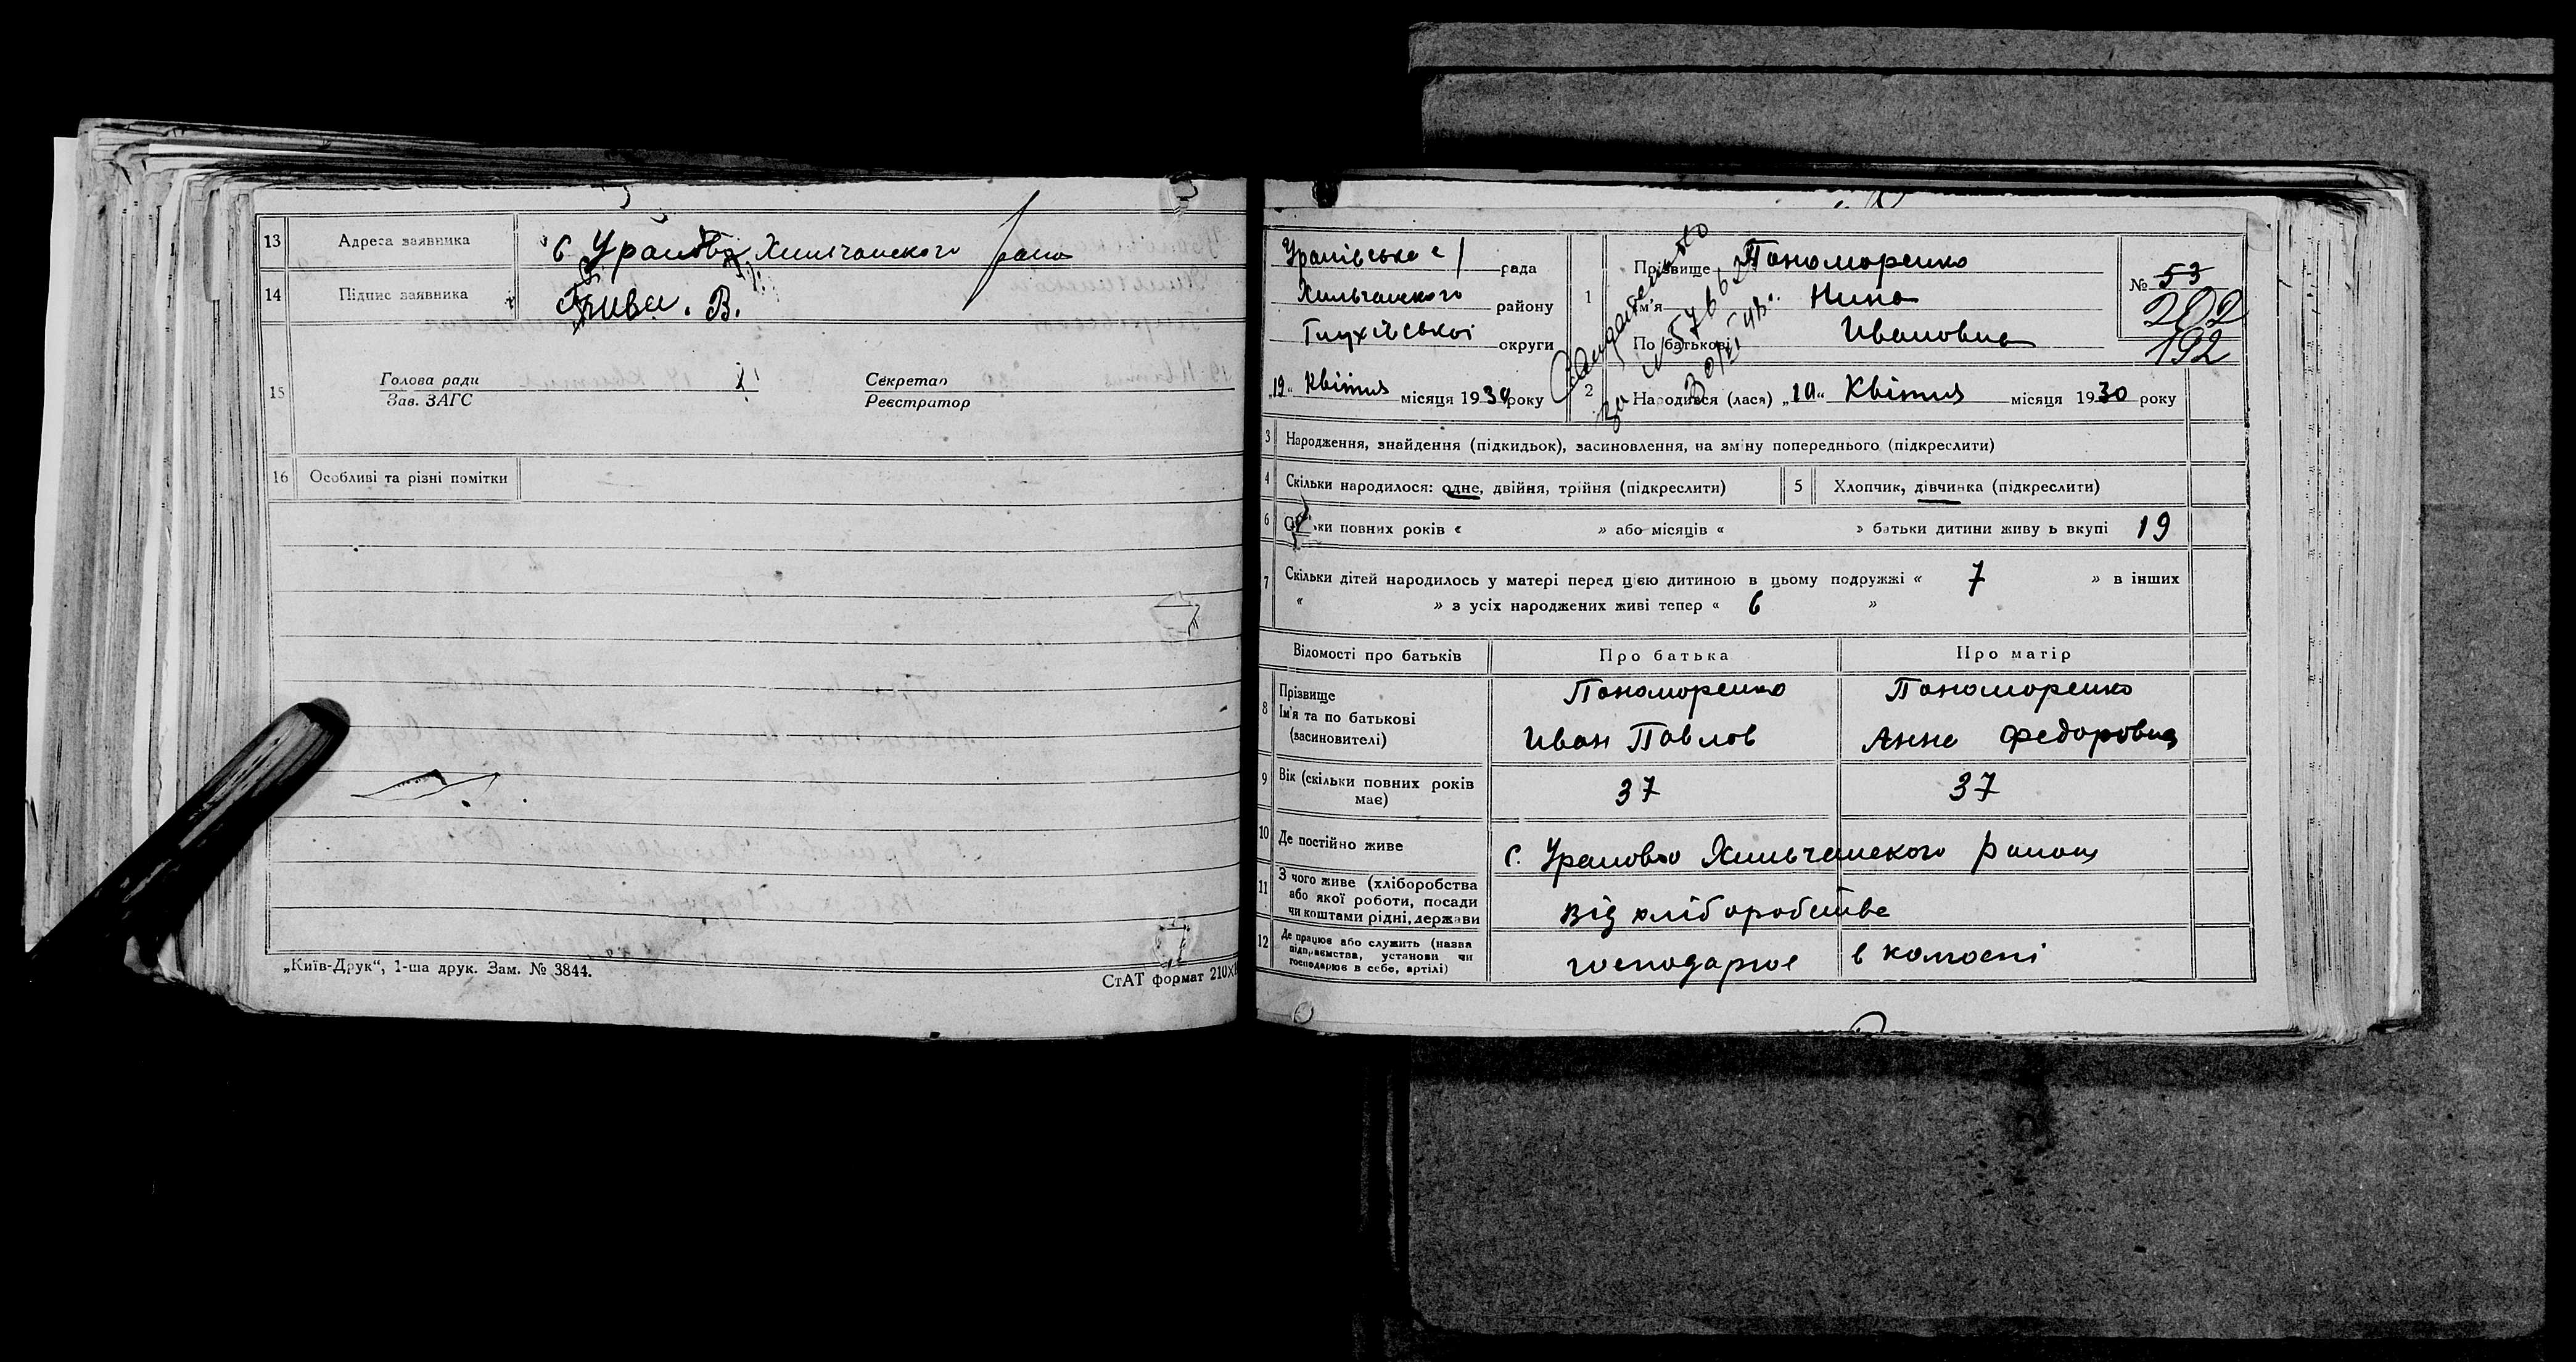 13 Адреса заявника с Ураново Хильчанского рано
14 Підпис заявника Грива. В.
15 Голова ради Секретар
Зав. ЗАГС Реєстратор
16 Особливі та різні помітки
„Київ-Друк“, 1-ша друк. Зам. № 3844.
СтАТ формат 210X
рада
Хильчанского району
Глухівської округи
„19“ Квітня місяця 1930 року
1 Прізвище Пономоренко
Ім'я Нина
По батькові Ивановна
№ 53
202
192
2 Народився (лася) „10“ Квітня місяця 1930 року
3 Народження, знайдення (підкидьок), засиновлення, на зміну попереднього (підкреслити)
4 Скільки народилося: одне, двійня, трійня (підкреслити) 5 Хлопчик, дівчинка (підкреслити)
6 Скільки повних років « » або місяців « » батьки дитини живуть вкупі 19
7 Скільки дітей народилось у матері перед цією дитиною в цьому подружжі « 7 » в інших
« » з усіх народжених живі тепер « 6 »
Відомості про батьків Про батька Про матір
8 Прізвище Пономоренко Пономоренко
Ім'я та по батькові Иван Павлов Анна Федоровна
(засиновителі)
9 Вік (скільки повних років 37 37
має)
10 Де постійно живе с. Ураново Хильчанского района
11 З чого живе (хліборобства
або якої роботи, посади від хліборобства
чи коштами рідні, держави
12 Де працює або служить (назва
підприємства, установи чи господарює в колгоспі
господарює в себе, артілі)